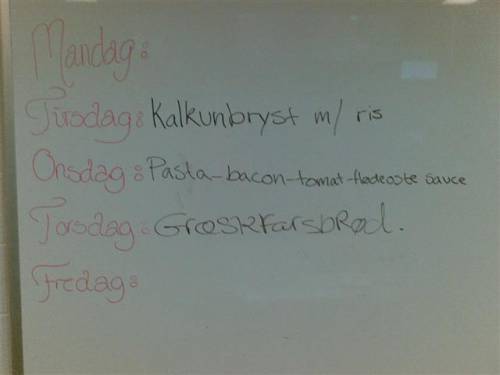 Mandag:
Tirsdag: Kalkunbryst m/ ris
Onsdag: Pasta-bacon-tomat-flødeoste sauce
Torsdag: Græsk Farsbrød.
Fredag: